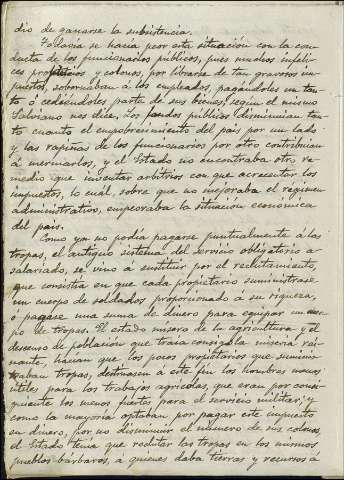 dio de ganarse la subsistencia.
Todavía se hacía peor esta situación con la con-
ducta de los funcionarios públicos, pues muchos infeli-
ces propietarios y colonos, por librarse de tan gravosos im-
puestos, sobornaban á los empleados, pagándoles un tan-
to ó cediéndoles parte de sus bienes, según el mismo
Salviano nos dice. Los fondos públicos disminuían tan-
to cuanto el empobrecimiento del país por un lado
y las rapiñas de los funcionarios por otro contribuían
á mermarlos, y el Estado no encontraba otro re-
medio que inventar arbitrios con que acrecentar los
impuestos, lo cuál, sobre que no mejoraba el régimen
administrativo, empeoraba la situación económica
del país.
Como ya no podía pagarse puntualmente á las
tropas, el antiguo sistema del servicio obligatorio a-
salariado, se vino a sustituir por el reclutamiento,
que consistía en que cada propietario suministrase
un cuerpo de soldados proporcionado a su riqueza,
ó pagase una suma de dinero para equipar un cuer-
po de tropas. El estado mísero de la agricultura y el
descenso de población que traía consigo la miseria rei-
nante, hacían que los pocos propietarios que suminis-
traban tropas, destinasen á este fin los hombres menos
útiles para los trabajos agrícolas, que eran por consi-
guiente los menos fuertes para el servicio militar; y
como la mayoría optaban por pagar este impuesto
en dinero, por no disminuir el número de sus colonos,
el Estado tenía que reclutar las tropas en los mismos
pueblos bárbaros, á quienes daba tierras y recursos á